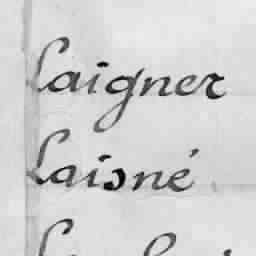 Laigner
Laisné